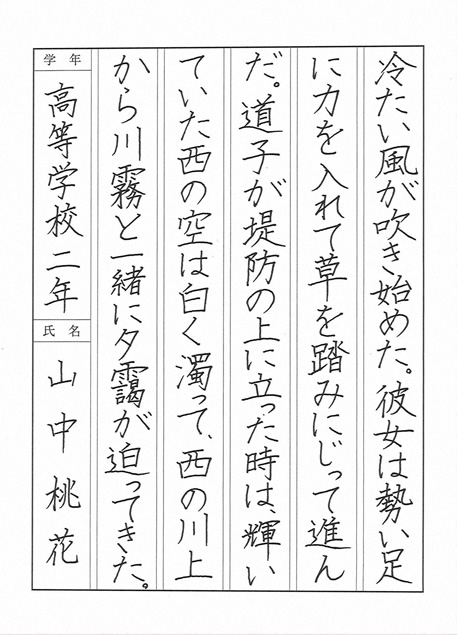 冷たい風が吹き始めた。彼女は勢い足
に力を入れて草を踏みにじって進ん
だ。道子が堤防の上に立った時は、輝い
ていた西の空は白く濁って、西の川上
から川霧と一緒に夕靄が迫ってきた。
学年
高等学校二年
氏名
山中桃花